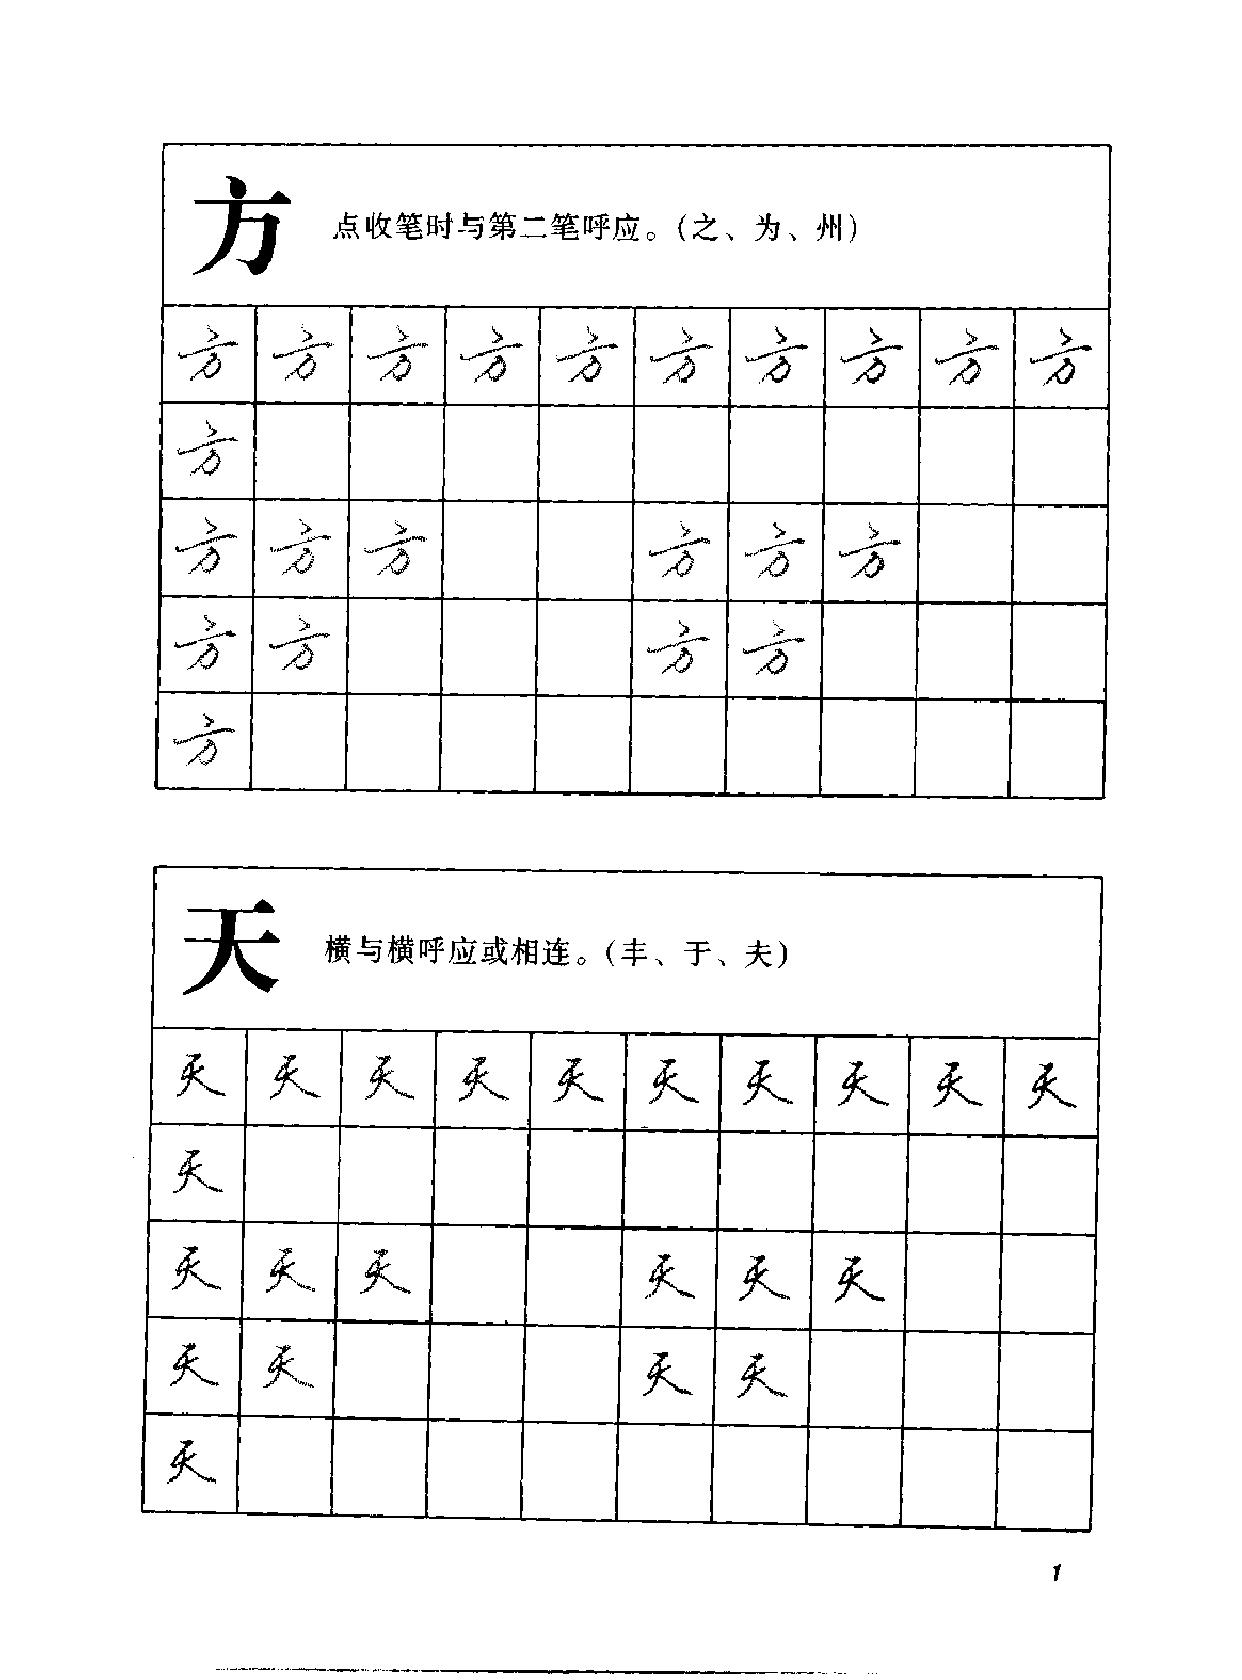 方 点收笔时与第二笔呼应。(之、为、州)
方 方 方 方 方 方 方 方 方 方
方
方 方 方 方 方 方
方 方 方 方
方
天 横与横呼应或相连。(丰、于、夫)
天 天 天 天 天 天 天 天 天 天
天
天 天 天 天 天 天
天 天 天 天
天
1